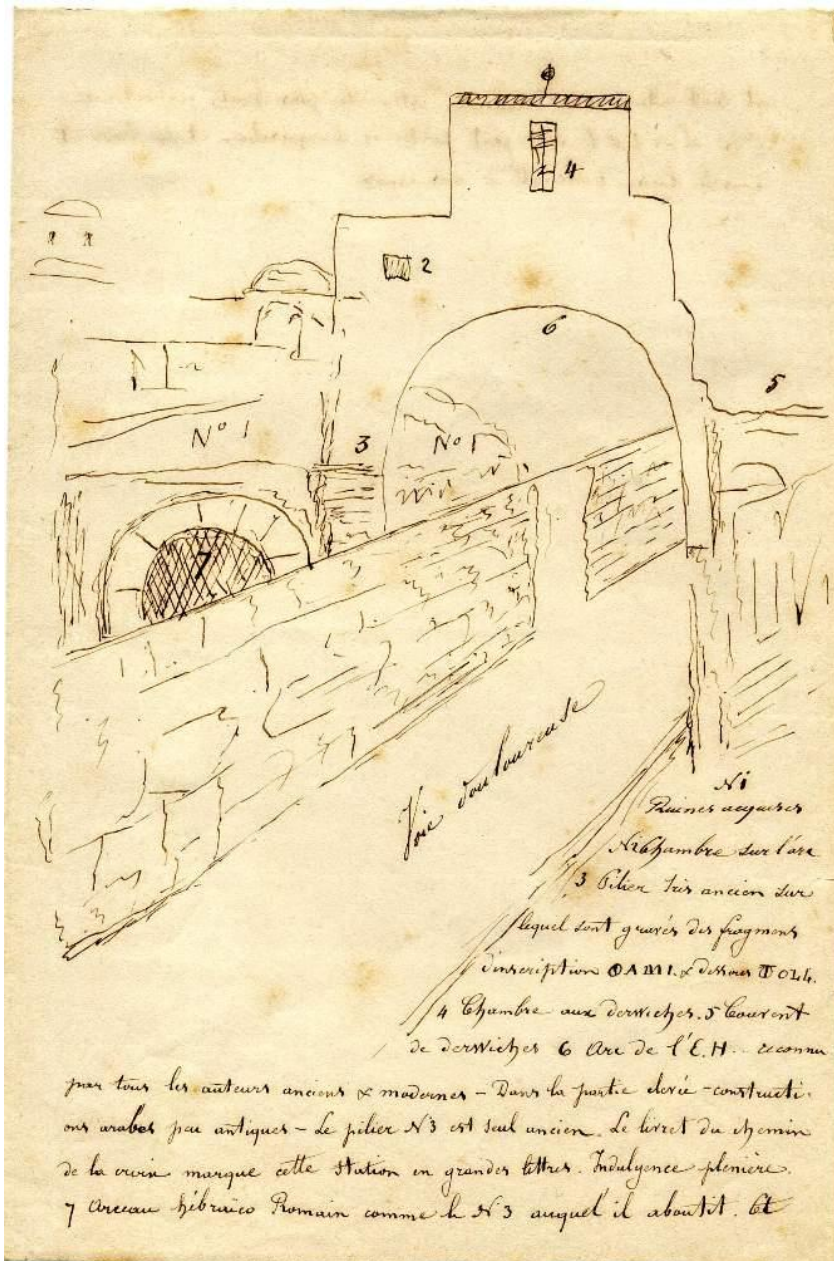 4
2
6
5
3
N° 1
N° 1
7
Voie douloureuse
N 1
Ruines acquises
N 2 Chambre sur l'arc
3 Pilier très ancien sur
lequel sont gravés des fragmens
d'inscription OAMI. & dessous TOLL.
4 Chambre aux derwiches. 5 Couvent
de derwiches 6 Arc de l'E.H. reconnu
par tous les auteurs anciens & modernes – Dans la partie élevée – constructi-
ons arabes peu antiques – Le pilier N 3 est seul ancien. Le livret du chemin
de la croix marque cette station en grandes lettres. Indulgence plenière.
7 Arceau hébraïco Romain comme le N 3 auquel il aboutit. Et